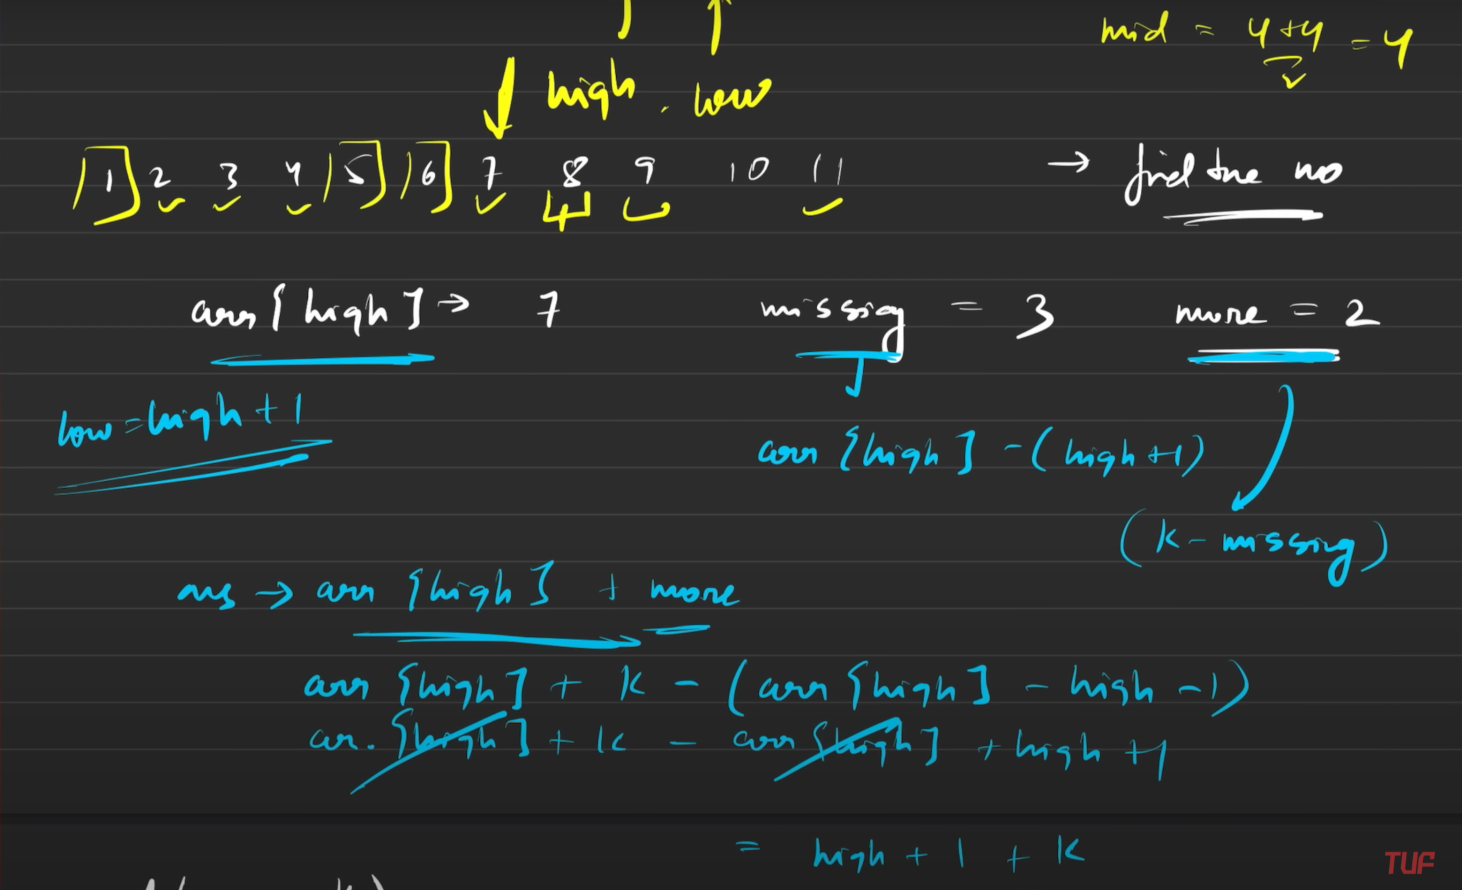 mid = 4+4/2 = 4
high, low
1 2 3 4 5 6 7 8 9 10 11 → find the no
arr[high] → 7 missing = 3 more = 2
low = high + 1
arr[high] - (high+1)
(k - missing)
ans → arr[high] + more
arr[high] + k - (arr[high] - high - 1)
arr[high] + k - arr[high] + high + 1
= high + 1 + k
TUF